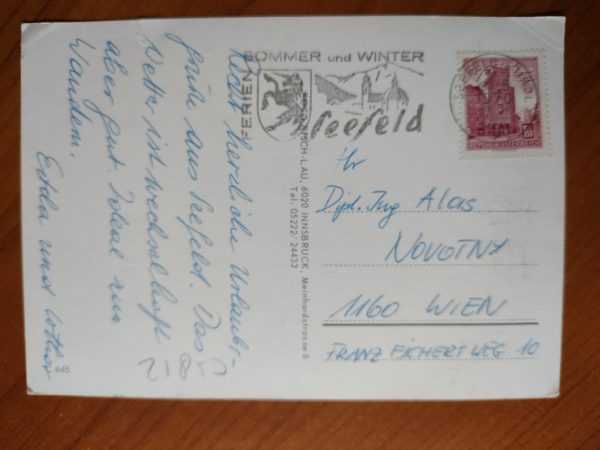 Recht herzliche Urlaubs-
grüße aus Seefeld. Das
Wetter ist wechselhaft
aber gut. Ideal zum
Wandern.
Edda und Lothar
645
FERIEN SOMMER und WINTER
Seefeld
RISCH-LAU, 6020 INNSBRUCK, Meinhardstrasse 6
Tel. 05222 24433
REPUBLIK ÖSTERREICH
Hr
Dipl. Ing Alois
NOVOTNY
1160 WIEN
FRANZ EICHERT WEG 10